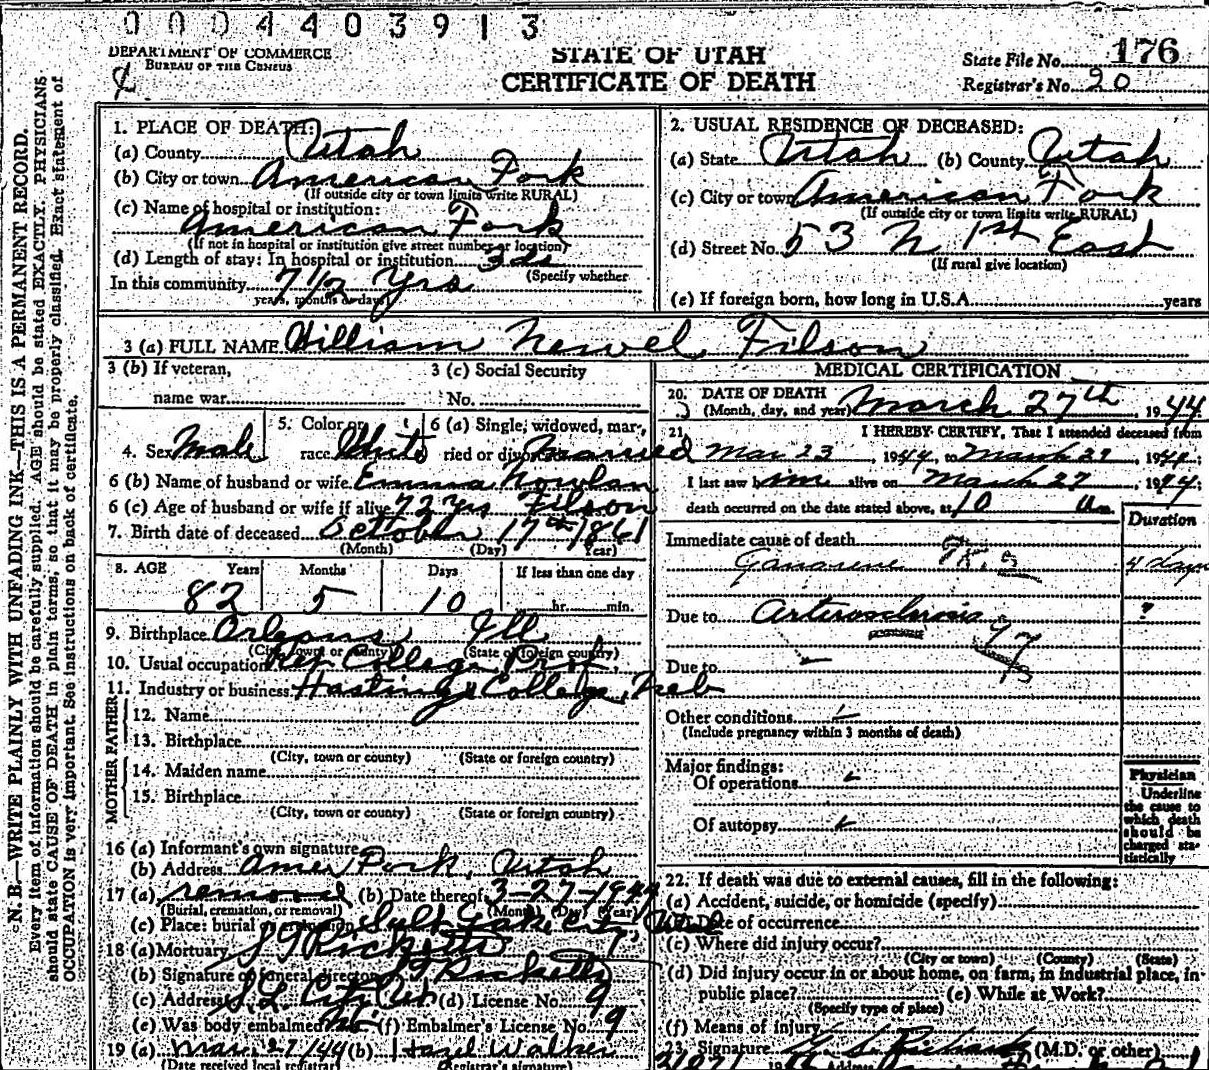 0004403913
DEPARTMENT OF COMMERCE
BUREAU OF THE CENSUS
STATE OF UTAH
CERTIFICATE OF DEATH
State File No. 176
Registrar's No. 20
N. B.—WRITE PLAINLY WITH UNFADING INK—THIS IS A PERMANENT RECORD.
Every item of information should be carefully supplied. AGE should be stated EXACTLY. PHYSICIANS
should state CAUSE OF DEATH in plain terms, so that it may be properly classified. Exact statement of
OCCUPATION is very important. See instructions on back of certificate.
1. PLACE OF DEATH:
(a) County Utah
(b) City or town American Fork
(If outside city or town limits write RURAL)
(c) Name of hospital or institution:
American Fork
(If not in hospital or institution give street number or location)
(d) Length of stay: In hospital or institution 3 ds
(Specify whether
In this community 7 1/2 Yrs
years, months or days)
2. USUAL RESIDENCE OF DECEASED:
(a) State Utah (b) County Utah
(c) City or town American Fork
(If outside city or town limits write RURAL)
(d) Street No. 53 N 1st East
(If rural give location)
(e) If foreign born, how long in U.S.A. years
3 (a) FULL NAME William Newel Filson
3 (b) If veteran,
name war
3 (c) Social Security
No.
4. Sex Male
5. Color or
race White
6 (a) Single, widowed, mar-
ried or divorced Married
6 (b) Name of husband or wife Emma Nowlan
6 (c) Age of husband or wife if alive 72 Yrs Filson
7. Birth date of deceased October 17th 1861
(Month) (Day) (Year)
8. AGE Years Months Days If less than one day
82 5 10 hr. min.
9. Birthplace Orleans Ill
(City, town or county) (State or foreign country)
10. Usual occupation Ret College Prof.
11. Industry or business Hastings College, Neb
FATHER
12. Name
13. Birthplace
(City, town or county) (State or foreign country)
MOTHER
14. Maiden name
15. Birthplace
(City, town or county) (State or foreign country)
16 (a) Informant's own signature
(b) Address Amer Fork, Utah
17 (a) removal (b) Date thereof 3-27-1944
(Burial, cremation, or removal) (Month) (Day) (Year)
(c) Place: burial or cremation Salt Lake City, Utah
18 (a) Mortuary J G Ricketts
(b) Signature of funeral director J G Ricketts
(c) Address S.L. City Utah (d) License No. 9
(e) Was body embalmed (f) Embalmer's License No. 9
19 (a) Mar. 27/44 (b) Hazel Walker
(Date received local registrar) (Registrar's signature)
MEDICAL CERTIFICATION
20. DATE OF DEATH
(Month, day, and year) March 27th, 1944
21. I HEREBY CERTIFY, That I attended deceased from
Mar 23, 1944, to March 27, 1944.
I last saw him alive on March 27, 1944;
death occurred on the date stated above, at 10 a m.
Duration
Immediate cause of death
Gangrene 4 days
Due to Arteriosclerosis ?
97
Due to
Other conditions
(Include pregnancy within 3 months of death)
Major findings:
Of operations
Of autopsy
Physician
Underline
the cause to
which death
should be
charged sta-
tistically
22. If death was due to external causes, fill in the following:
(a) Accident, suicide, or homicide (specify)
(b) Date of occurrence
(c) Where did injury occur?
(City or town) (County) (State)
(d) Did injury occur in or about home, on farm, in industrial place, in
public place? (e) While at Work?
(Specify type of place)
(f) Means of injury
23. Signature (M.D. or other)
Address